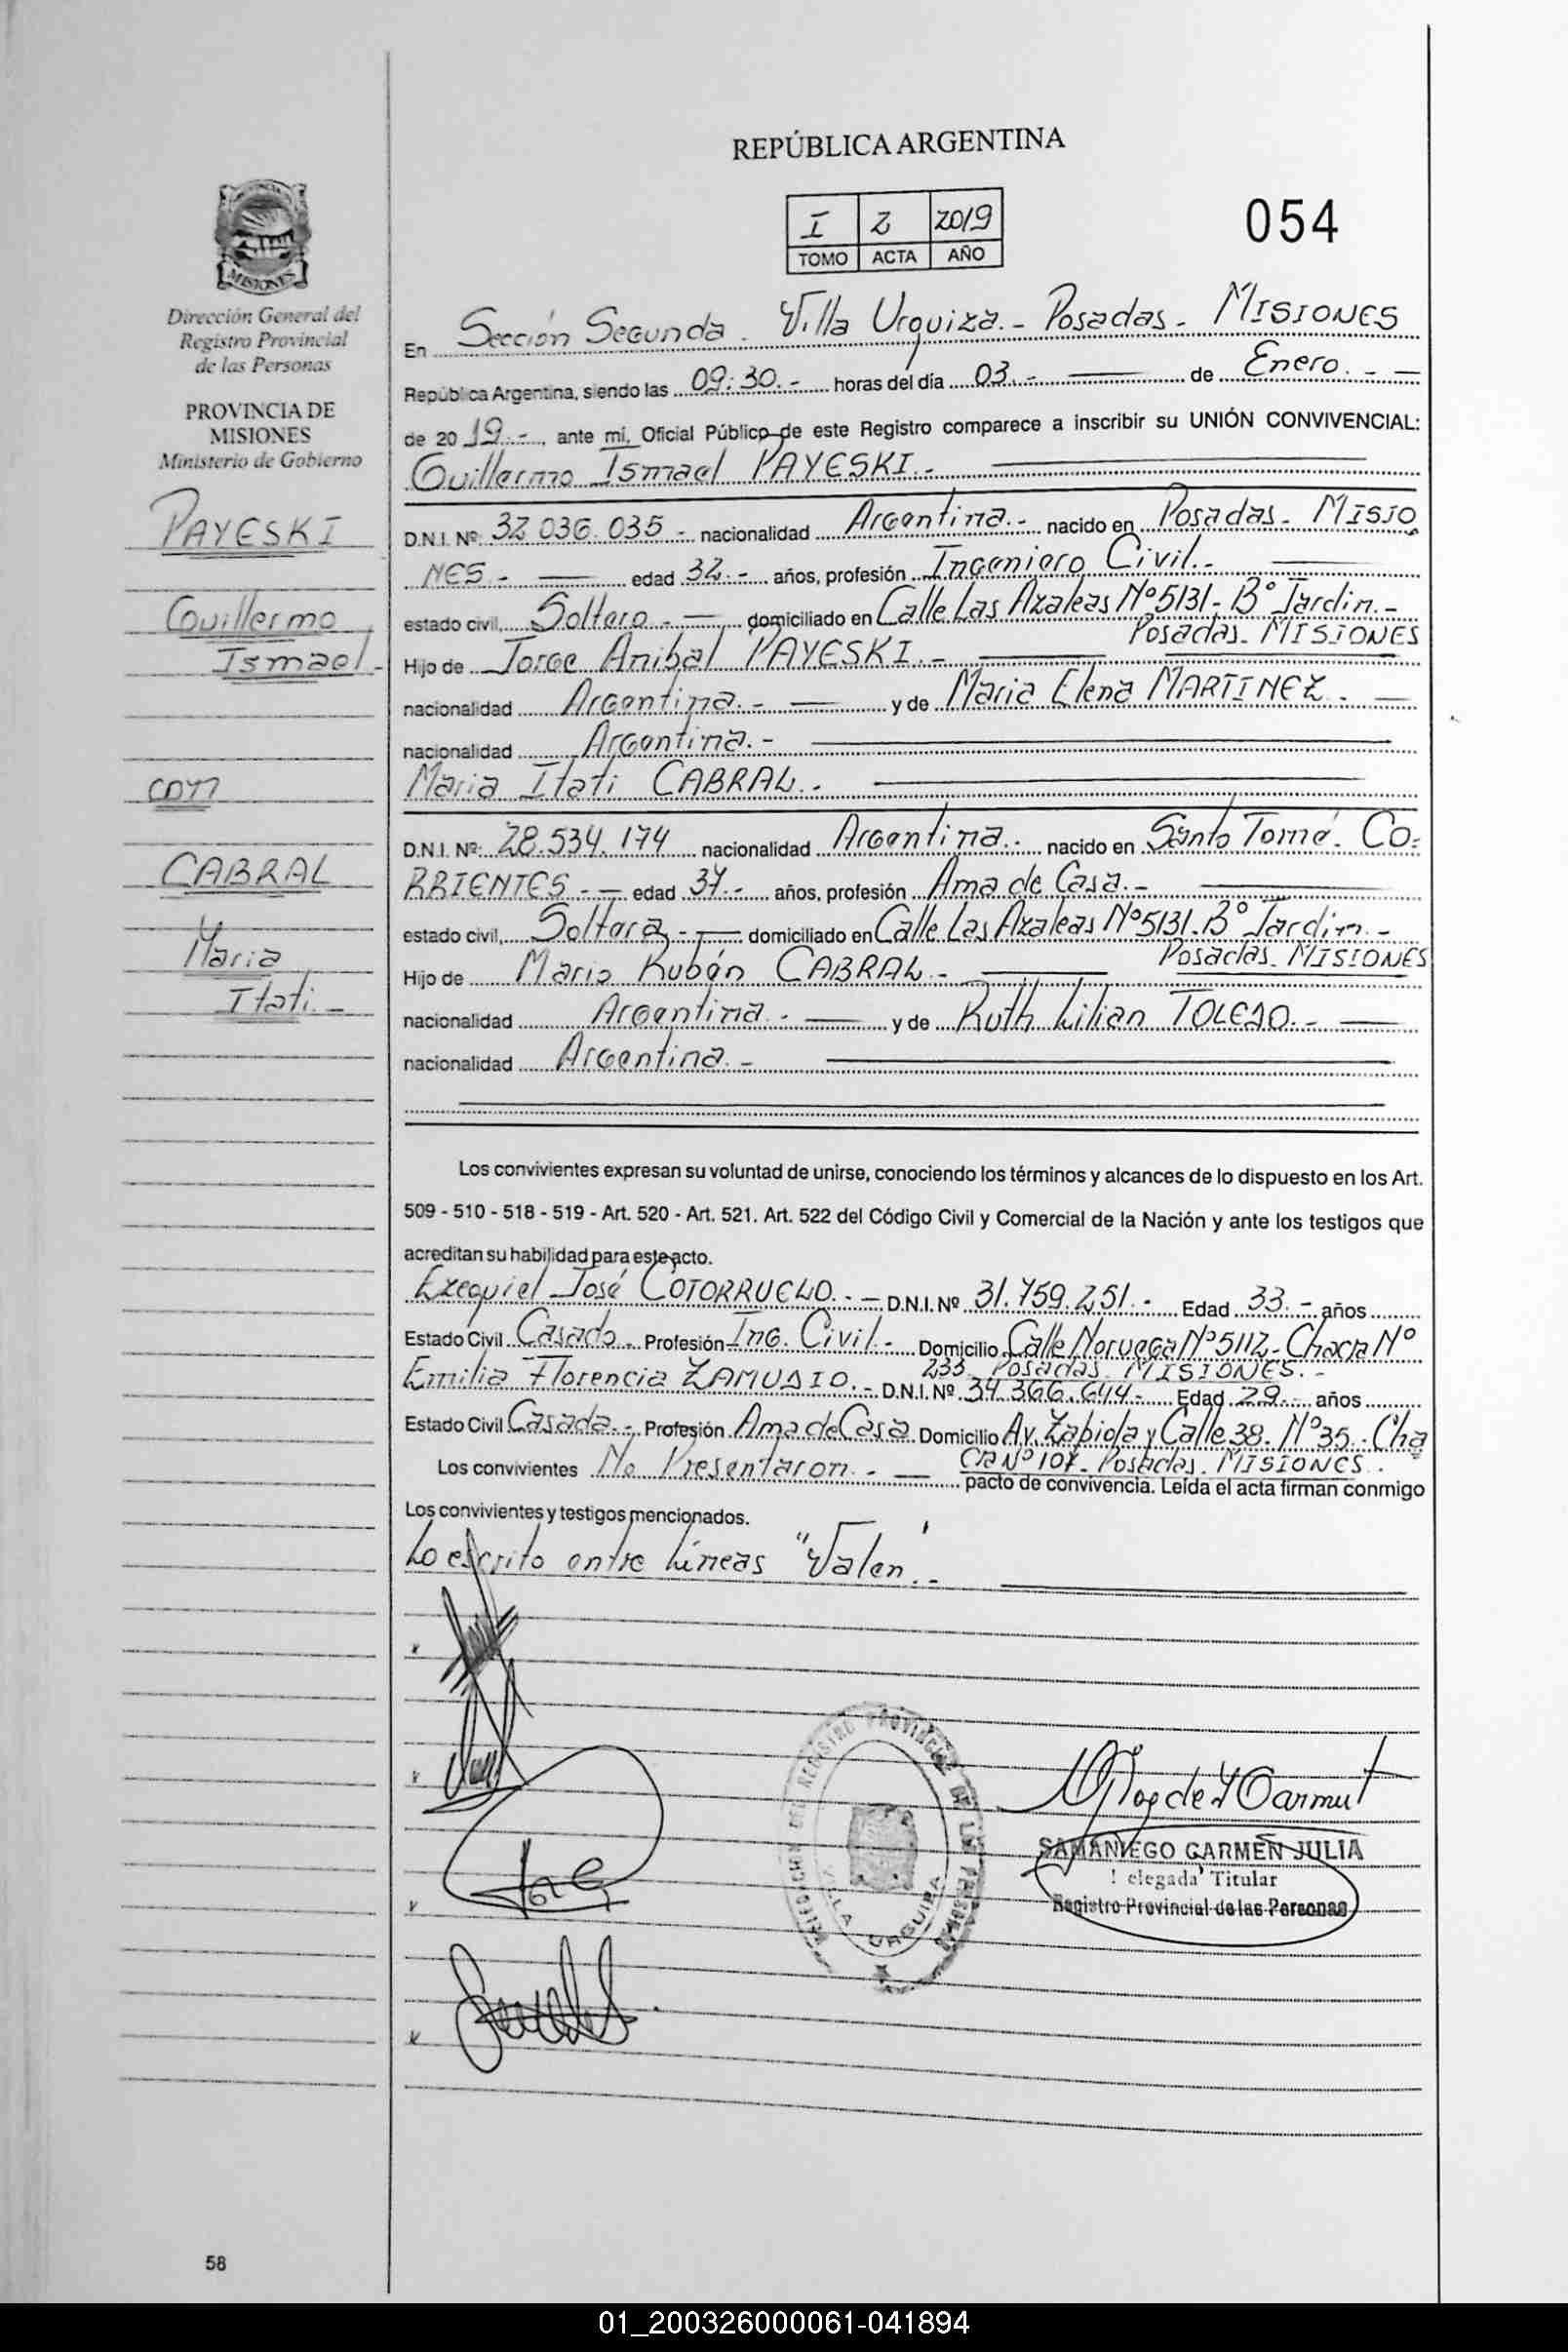 REPÚBLICA ARGENTINA
I 2 2019
TOMO ACTA AÑO
054
PROVINCIA DE
MISIONES
Dirección General del
Registro Provincial
de las Personas
PROVINCIA DE
MISIONES
Ministerio de Gobierno
PAYESKI
Guillermo
Ismael.-
CABRAL
Maria
Itati.-
58
En Sección Segunda. Villa Urquiza.- Posadas.- MISIONES
República Argentina, siendo las 09:30.- horas del día 03.- de Enero.-
de 2019.-, ante mí, Oficial Público de este Registro comparece a inscribir su UNIÓN CONVIVENCIAL:
Guillermo Ismael PAYESKI.-
D.N.I. Nº: 32.036.035.- nacionalidad Argentina.- nacido en Posadas.- MISIO
NES.- edad 32.- años, profesión Ingeniero Civil.-
estado civil, Soltero.- domiciliado en Calle Las Azaleas Nº5131- Bº Jardin.-
Posadas.- MISIONES
Hijo de Jorge Anibal PAYESKI.-
nacionalidad Argentina.- y de Maria Elena MARTINEZ.-
nacionalidad Argentina.-
Maria Itati CABRAL.-
D.N.I. Nº: 28.534.174 nacionalidad Argentina.- nacido en Santo Tomé. CO-
RRIENTES.- edad 37.- años, profesión Ama de Casa.-
estado civil, Soltera.- domiciliado en Calle Las Azaleas Nº5131.Bº Jardin.-
Posadas. MISIONES
Hijo de Mario Rubén CABRAL.-
nacionalidad Argentina.- y de Ruth Lilian TOLEDO.-
nacionalidad Argentina.-
Los convivientes expresan su voluntad de unirse, conociendo los términos y alcances de lo dispuesto en los Art.
509 - 510 - 518 - 519 - Art. 520 - Art. 521. Art. 522 del Código Civil y Comercial de la Nación y ante los testigos que
acreditan su habilidad para este acto.
Ezequiel José COTORRUELO.- D.N.I. Nº 31.759.251.- Edad 33.- años
Estado Civil Casado.- Profesión Ing. Civil.- Domicilio Calle Noruega Nº5112- Chacra Nº
233. Posadas. MISIONES.-
Emilia Florencia ZAMUDIO.- D.N.I. Nº 34.366.644.- Edad 29.- años
Estado Civil Casada.- Profesión Ama de Casa. Domicilio Av. Zabiola y Calle 38. Nº35.- Cha
cra Nº 107- Posadas. MISIONES.
Los convivientes No Presentaron.- pacto de convivencia. Leída el acta firman conmigo
Los convivientes y testigos mencionados.
Lo escrito entre Líneas "Valen".-
DELEGACION DEL REGISTRO PROVINCIAL DE LAS PERSONAS
VILLA URQUIZA
SAMANIEGO CARMEN JULIA
Delegada Titular
Registro Provincial de las Personas
01_200326000061-041894